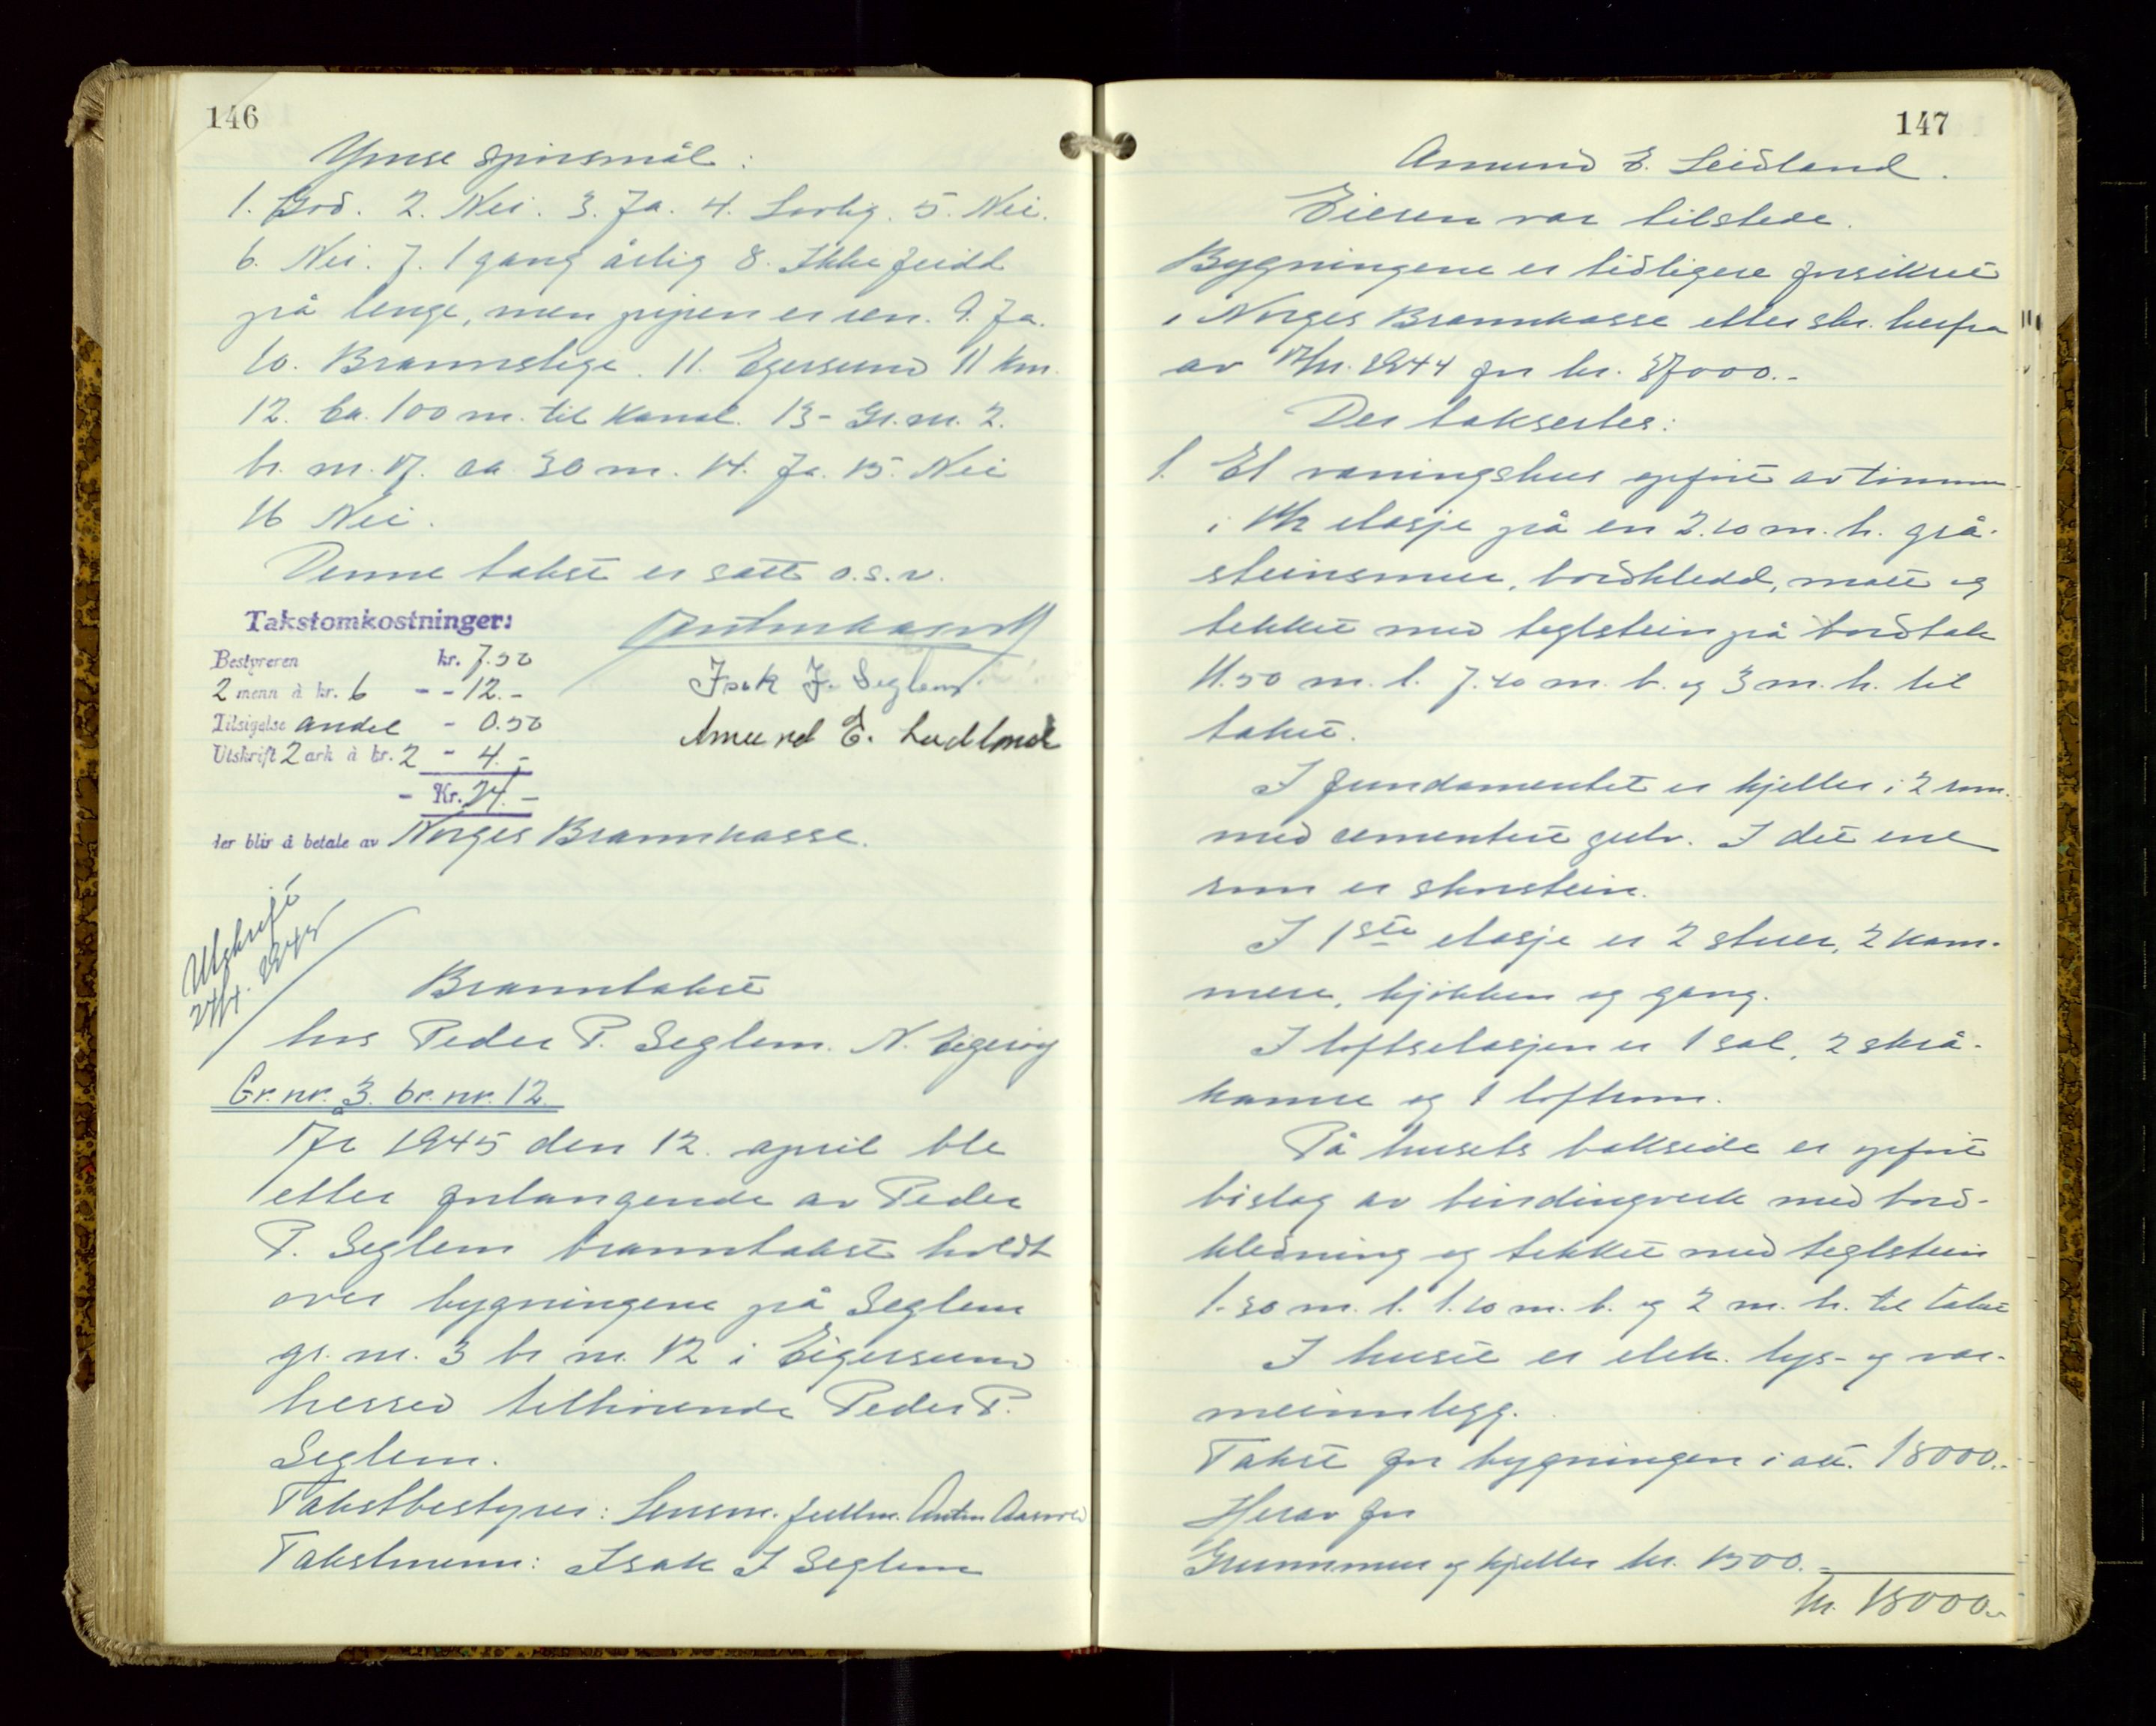 146
Ymse spørsmål:
1. God. 2. Nei. 3. Ja. 4. Lovlig. 5. Nei.
6. Nei. 7. 1 gang årlig 8. Ikke feidd
på lenge, men pipen er ren. 9. Ja.
10. Brannstige. 11. Egersund 11 km.
12. Ca. 100 m. til kanal. 13- Gr. nr. 2.
br. nr. 17. ca 30 m. 14. Ja. 15. Nei
16 Nei.
Denne takst er satt o.s.v.
Takstomkostninger:
Bestyreren kr. 7.50
2 menn à kr. 6 - - 12.-
Tilsigelse andel - 0.50
Utskrift 2 ark à kr. 2 - 4.-
- Kr. 24.-
der blir å betale av Norges Brannkasse.
Isak J. Seglem
Amund E. Leidland
Utskrift
Branntakst
hos Peder P. Seglem. N. Eigerøy
Gr. nr. 3. br. nr. 12.
År 1945 den 12. april ble
etter forlangende av Peder
P. Seglem branntakst holdt
over bygningene på Seglem
gr. nr. 3 br nr. 12 i Eigersund
herred tilhørende Peder P.
Seglem.
Takstbestyrer: Lensm. fullm. Anton Aasvold
Takstmenn: Isak J Seglem
147
Amund E. Leidland.
Eieren var tilstede.
Bygningene er tidligere forsikret
i Norges Brannkasse etter skr. herfra
av 1944 for kr. 37000.-
Der takseredes:
1. Et våningshus opført av tømmer
i 1½ etasje på en 2.10 m. h. grå-
steinsmur, bordkledd, malt og
tekket med teglstein på bordtak
11.50 m. l. 7.40 m. b. og 3 m. h. til
taket.
I fundamentet er kjeller i 2 rom.
med cementert gulv. I det ene
rom er skorstein.
I 1ste etasje er 2 stuer, 2 kam-
mere, kjøkken og gang.
I loftsetasjen er 1 sal, 2 skrå-
kamre og 1 loftsrom.
På husets bakside er opført
bislag av bindingverk med bord-
kledning og tekket med teglstein
1.30 m. l. 1.10 m. b. og 2 m. h. til taket
I huset er elek. lys- og var-
meinnlegg.
Takst for bygningen i alt. 18000.-
Herav for
Grunnmur og kjeller kr. 1500.-
kr. 18000.-